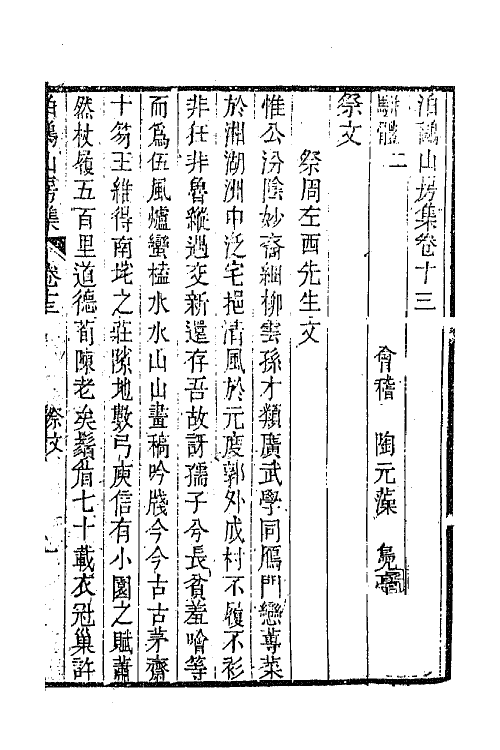 泊鷗山房集卷十三
駢體二
會稽 陶元藻 鳧亭
祭文
祭周左西先生文
惟公汾陰妙裔細柳雲孫才類廣武學同鴈門戀蓴菜
於湘湖洲中泛宅挹清風於元度郭外成村不履不衫
非狂非魯縱遇交新還存吾故訝孺子兮長貧羞噲等
而爲伍風爐蠻榼水水山山畫稿吟牋今今古古茅齋
十笏王維得南垞之莊隙地數弓庾信有小園之賦蕭
然杖履五百里道德荀陳老矣鬚眉七十載衣冠巢許
泊鷗山房集 卷十三 祭文